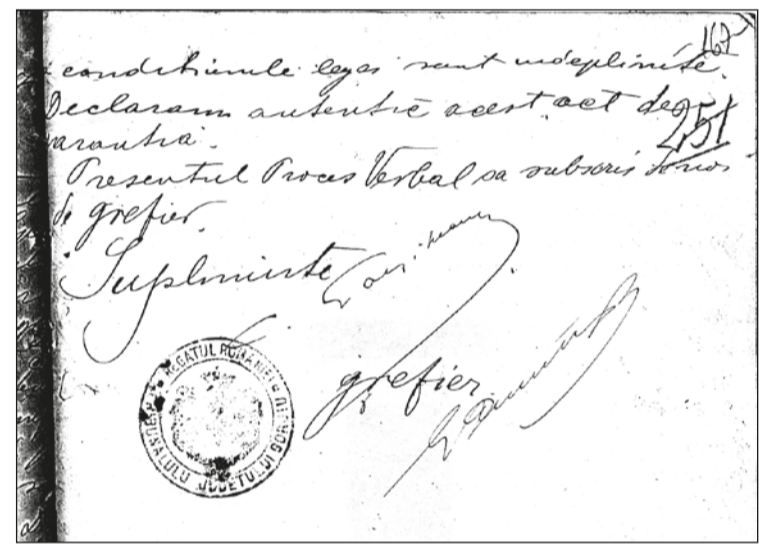 167
condițiunile legei sunt indeplinite.
Declaram autentic acest act de
251
garantia.
Presentul Proces Verbal sa subscris si noi
de grefier.
Supleninte
grefier
REGATUL ROMANIEI TRIBUNALULU JUDETULUI GOR